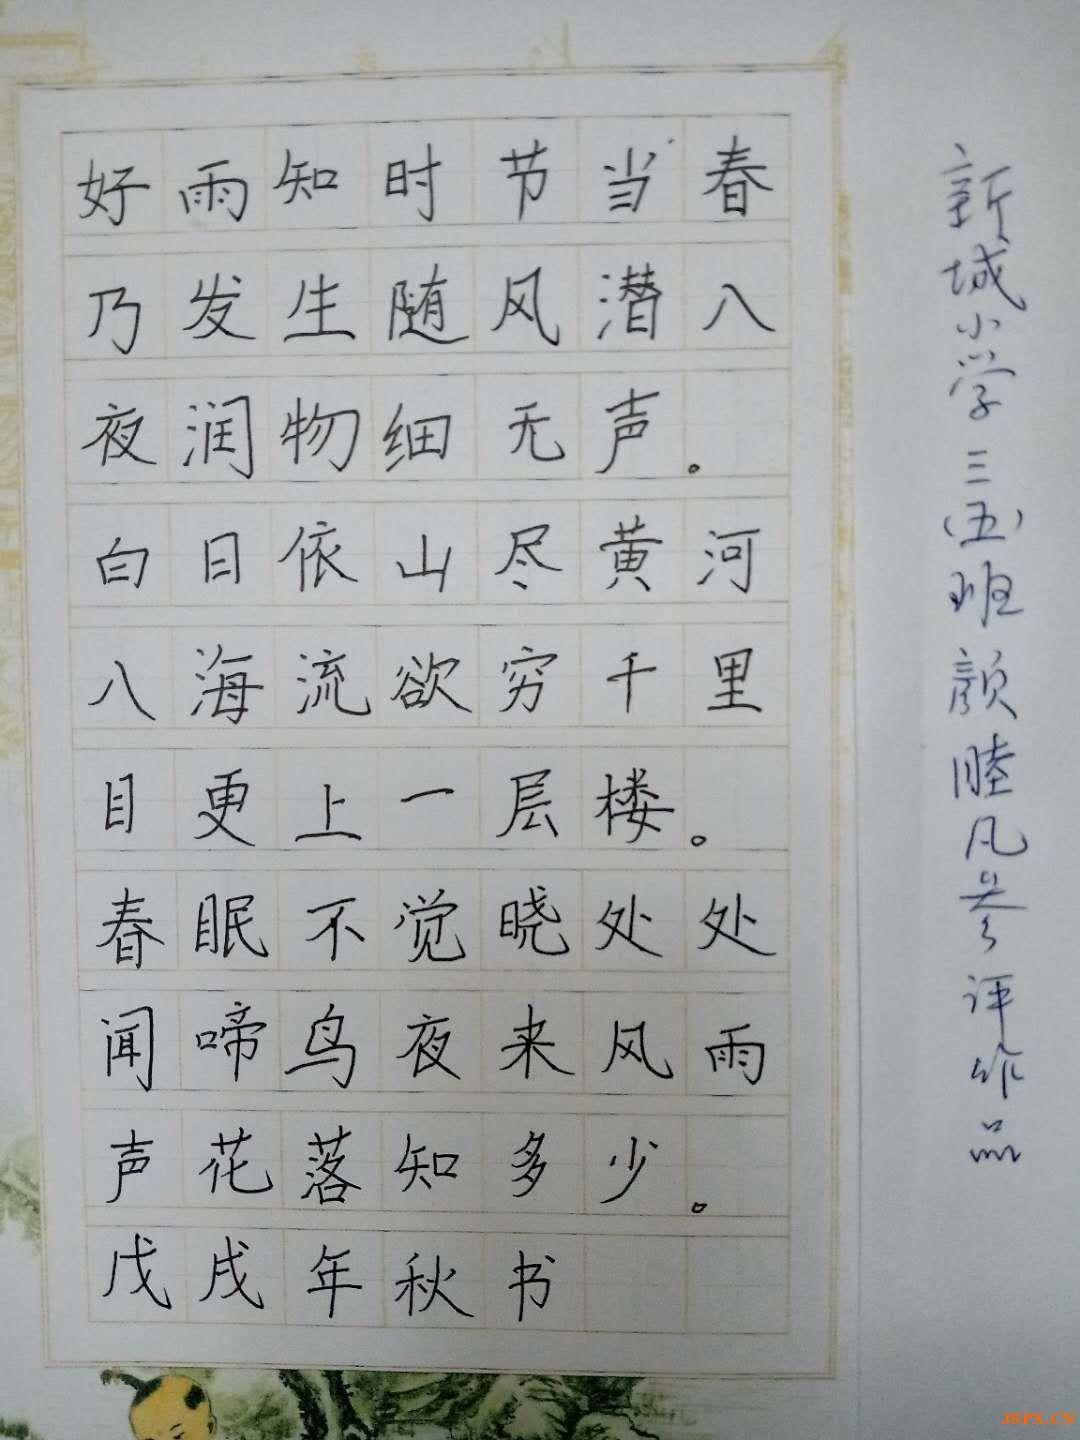 好雨知时节当春
乃发生随风潜八
夜润物细无声。
白日依山尽黄河
八海流欲穷千里
目更上一层楼。
春眠不觉晓处处
闻啼鸟夜来风雨
声花落知多少。
戊戌年秋书
新城小学三(五)班颜睦凡参评作品
JSPX.CN